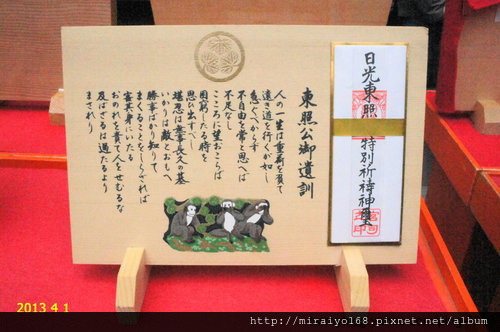 東照公御遺訓
人の一生は重荷を負て
遠き道を行くが如し
急ぐべからず
不自由を常と思へば
不足なし
こころに望おこらば
困窮したる時を
思ひ出すべし
堪忍は無事長久の基
いかりは敵とおもへ
勝事ばかり知りて
まくることをしらざれば
害其身にいたる
おのれを責て人をせむるな
及ばざるは過たるより
まされり
日光東照 特別祈祷神璽
2013 4 1
http://miraiyo168.pixnet.net/album